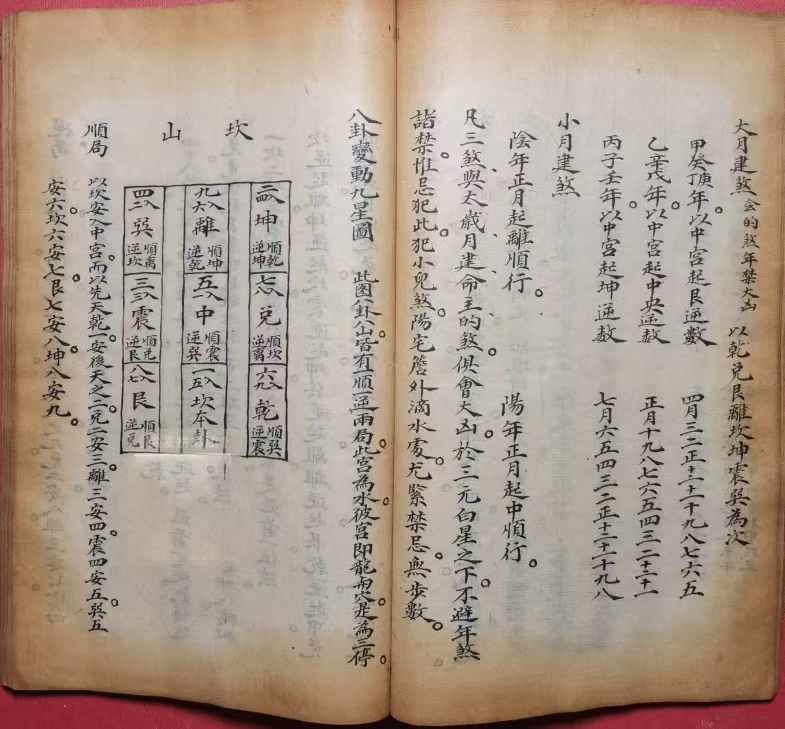 大月建煞 会的煞年禁大凶 以乾兌艮離坎坤震巽為次
甲癸丁庚年。以中宮起艮逆數 四月三二正十二十一十九八七六五
乙辛戊年。以中宮起中央逆数 正月十九八七六五四三二十二十一
丙子壬年。以中宮起坤逆数 七月六五四三二正十二十一十九八
小月建煞
陰年正月起離順行。 陽年正月起中順行。
凡三煞、與太歲、月建、命主的煞。俱會大凶。於三元白星之下。不避年煞
諸禁。惟忌犯此。犯小兒煞。陽宅簷外滴水處。尤緊禁忌。無步數。
八卦變動九星圖 此图八卦八山。皆有順逆兩局。此宮為水。彼宮即龍。而穴是為三停。
坎山
坤 順乾 逆坤
七 八 兌 順坎 逆离
六 九 乾 順巽 逆震
九 六 離 順坤 逆乾
五 中 順震 逆巽
一 五 坎本卦
四 二 巽 順离 逆坎
三 震 順兑 逆艮
八 七 艮 順艮 逆兑
順局 以坎安入中宮。而以先天乾一。安後天之一。兌二安二。離三安四。震四安五。巽五
安六。坎六安七。艮七安八。坤八安九。